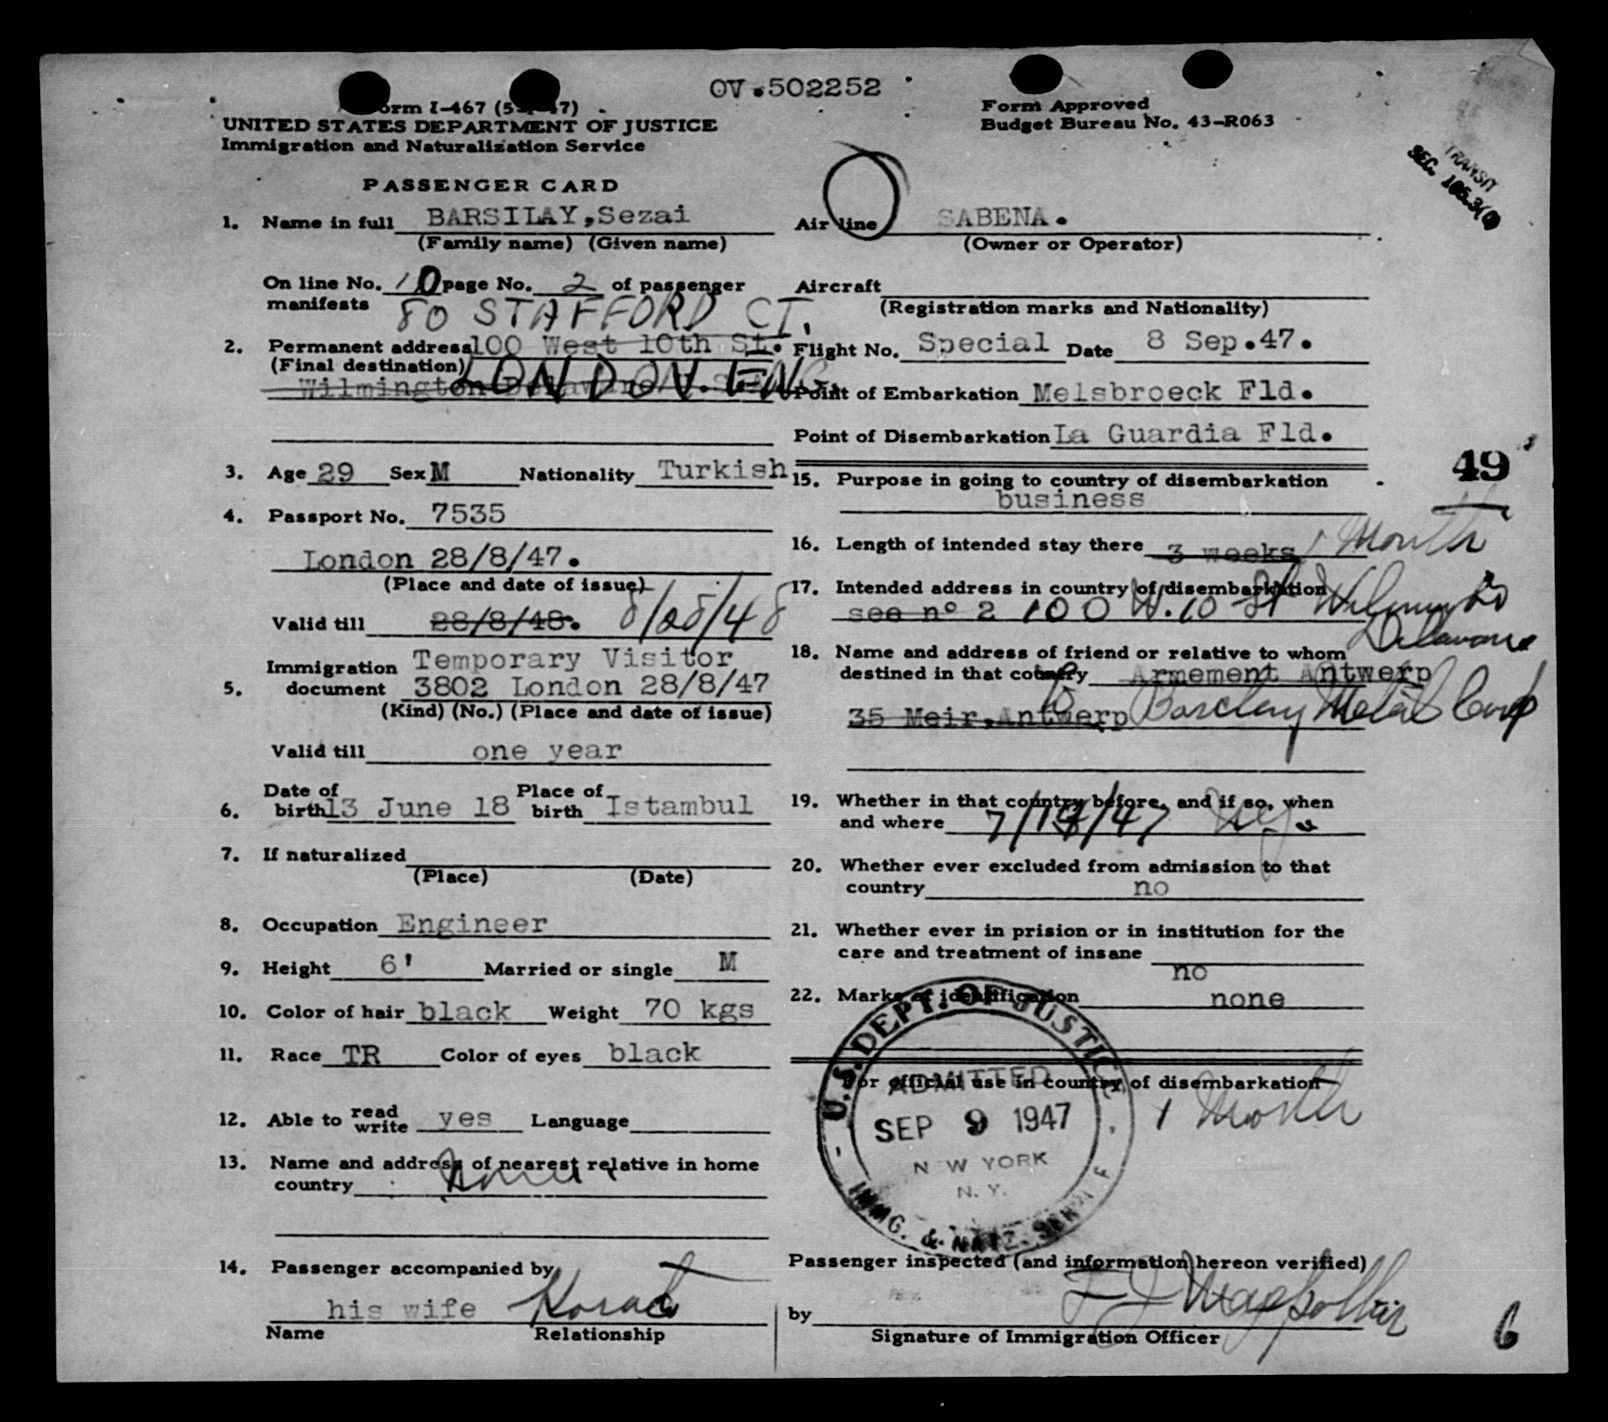 OV.502252
Form I-467
UNITED STATES DEPARTMENT OF JUSTICE
Immigration and Naturalization Service
Form Approved
Budget Bureau No. 43-R063
TRANSIT
SEC.
PASSENGER CARD
1. Name in full BARSILAY,Sezai
(Family name) (Given name)
On line No. 10 page No. 2 of passenger
manifests
80 STAFFORD CT.
2. Permanent address 100 West 10th St.
(Final destination) LONDON. ENG.
Wilmington Delaware
3. Age 29 Sex M Nationality Turkish
4. Passport No. 7535
London 28/8/47.
(Place and date of issue)
Valid till 28/8/48. 8/28/48
Immigration Temporary Visitor
5. document 3802 London 28/8/47
(Kind) (No.) (Place and date of issue)
Valid till one year
6. Date of birth 13 June 18 Place of birth Istambul
7. If naturalized
(Place) (Date)
8. Occupation Engineer
9. Height 6' Married or single M
10. Color of hair black Weight 70 kgs
11. Race TR Color of eyes black
12. Able to read write yes Language
13. Name and address of nearest relative in home
country None
14. Passenger accompanied by
his wife
Name Relationship
Air line SABENA.
(Owner or Operator)
Aircraft
(Registration marks and Nationality)
Flight No. Special Date 8 Sep.47.
Point of Embarkation Melsbroeck Fld.
Point of Disembarkation La Guardia Fld.
49
15. Purpose in going to country of disembarkation
business
16. Length of intended stay there 3 weeks 1 Month
17. Intended address in country of disembarkation
see n° 2 100 W. 10 St Wilmington
Delaware
18. Name and address of friend or relative to whom
destined in that country Armement Antwerp
35 Meir,Antwerp Barclay Metal Corp
19. Whether in that country before, and if so, when
and where 7/19/47 NY
20. Whether ever excluded from admission to that
country no
21. Whether ever in prision or in institution for the
care and treatment of insane
no
22. Marks of identification none
For official use in country of disembarkation
1 Month
U.S. DEPT. OF JUSTICE
ADMITTED
SEP 9 1947
NEW YORK
N. Y.
IMMG. & NATZ. SERV.
Passenger inspected (and information hereon verified)
by
Signature of Immigration Officer
6